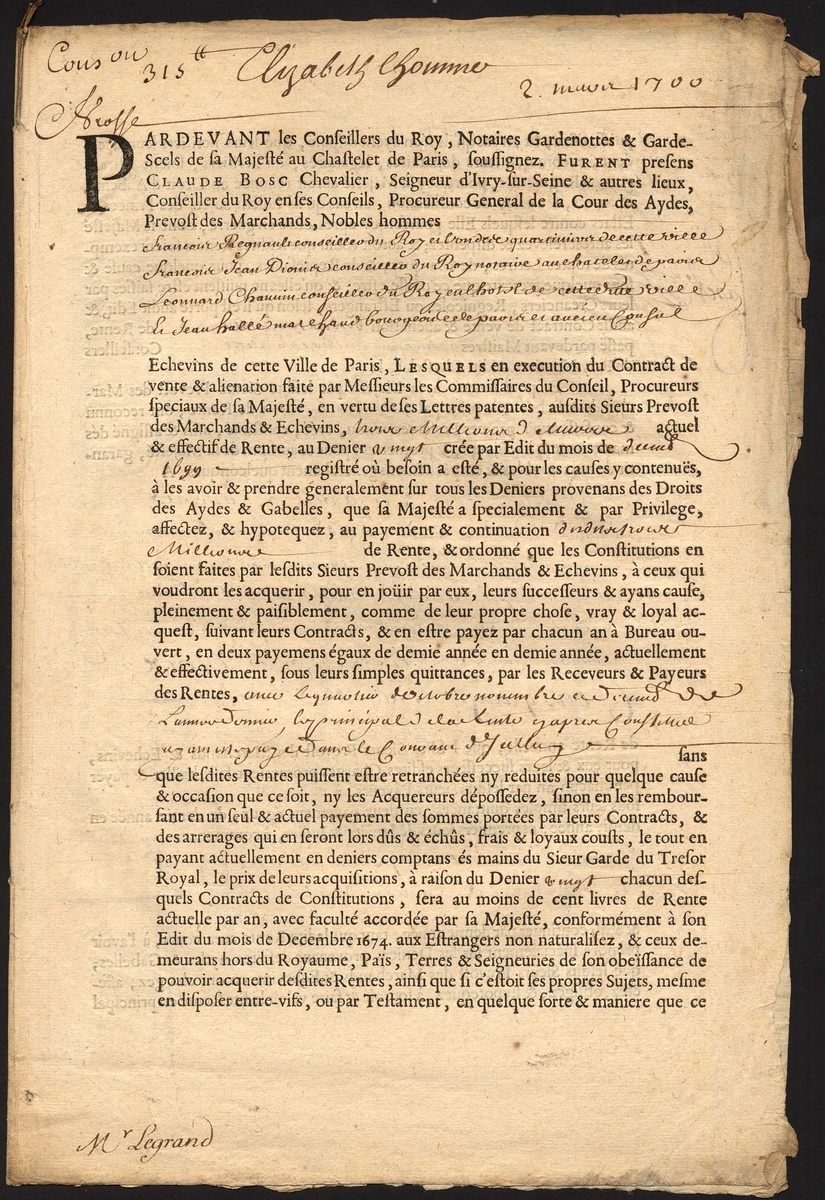 Cons on 315 tt Elizabeth Lhomme
2. mars 1700
PARDEVANT les Conseillers du Roy, Notaires Gardenottes & Garde-
Scels de sa Majesté au Chastelet de Paris, soussignez. FURENT presens
CLAUDE BOSC Chevalier, Seigneur d'Ivry-sur-Seine & autres lieux,
Conseiller du Roy en ses Conseils, Procureur General de la Cour des Aydes,
Prevost des Marchands, Nobles hommes
francois Regnault conseiller du Roy et quartinier de cette ville
francois Jean Dionis conseiller du Roy notaire au chatelet de paris
Leonnard Chauvin conseiller du Roy en l'hotel de cette ville
Et Jean hallé marchand bourgeois de paris et ancien Consul
Echevins de cette Ville de Paris, LESQUELS en execution du Contract de
vente & alienation faite par Messieurs les Commissaires du Conseil, Procureurs
speciaux de sa Majesté, en vertu de ses Lettres patentes, ausdits Sieurs Prevost
des Marchands & Echevins, trois Millions de livres actuel
& effectif de Rente, au Denier vingt crée par Edit du mois de decemb
1699 registré où besoin a esté, & pour les causes y contenuës,
à les avoir & prendre generalement sur tous les Deniers provenans des Droits
des Aydes & Gabelles, que sa Majesté a specialement & par Privilege,
affectez, & hypotequez, au payement & continuation desdits trois
Millions de Rente, & ordonné que les Constitutions en
soient faites par lesdits Sieurs Prevost des Marchands & Echevins, à ceux qui
voudront les acquerir, pour en joüir par eux, leurs successeurs & ayans cause,
pleinement & paisiblement, comme de leur propre chose, vray & loyal ac-
quest, suivant leurs Contracts, & en estre payez par chacun an à Bureau ou-
vert, en deux payemens égaux de demie année en demie année, actuellement
& effectivement, sous leurs simples quittances, par les Receveurs & Payeurs
des Rentes, avec le quartier d'octobre novembre et decemb de
L'année derniere, le principal de la Rente cy apres Constituée
ayant esté payé dans le Courant
sans
que lesdites Rentes puissent estre retranchées ny reduites pour quelque cause
& occasion que ce soit, ny les Acquereurs dépossedez, sinon en les rembour-
sant en un seul & actuel payement des sommes portées par leurs Contracts, &
des arrerages qui en seront lors dûs & échûs, frais & loyaux cousts, le tout en
payant actuellement en deniers comptans és mains du Sieur Garde du Tresor
Royal, le prix de leurs acquisitions, à raison du Denier vingt chacun des-
quels Contracts de Constitutions, sera au moins de cent livres de Rente
actuelle par an, avec faculté accordée par sa Majesté, conformément à son
Edit du mois de Decembre 1674. aux Estrangers non naturalisez, & ceux de-
meurans hors du Royaume, Païs, Terres & Seigneuries de son obeïssance de
pouvoir acquerir desdites Rentes, ainsi que si c'estoit ses propres Sujets, mesme
en disposer entre-vifs, ou par Testament, en quelque sorte & maniere que ce
Mr Legrand